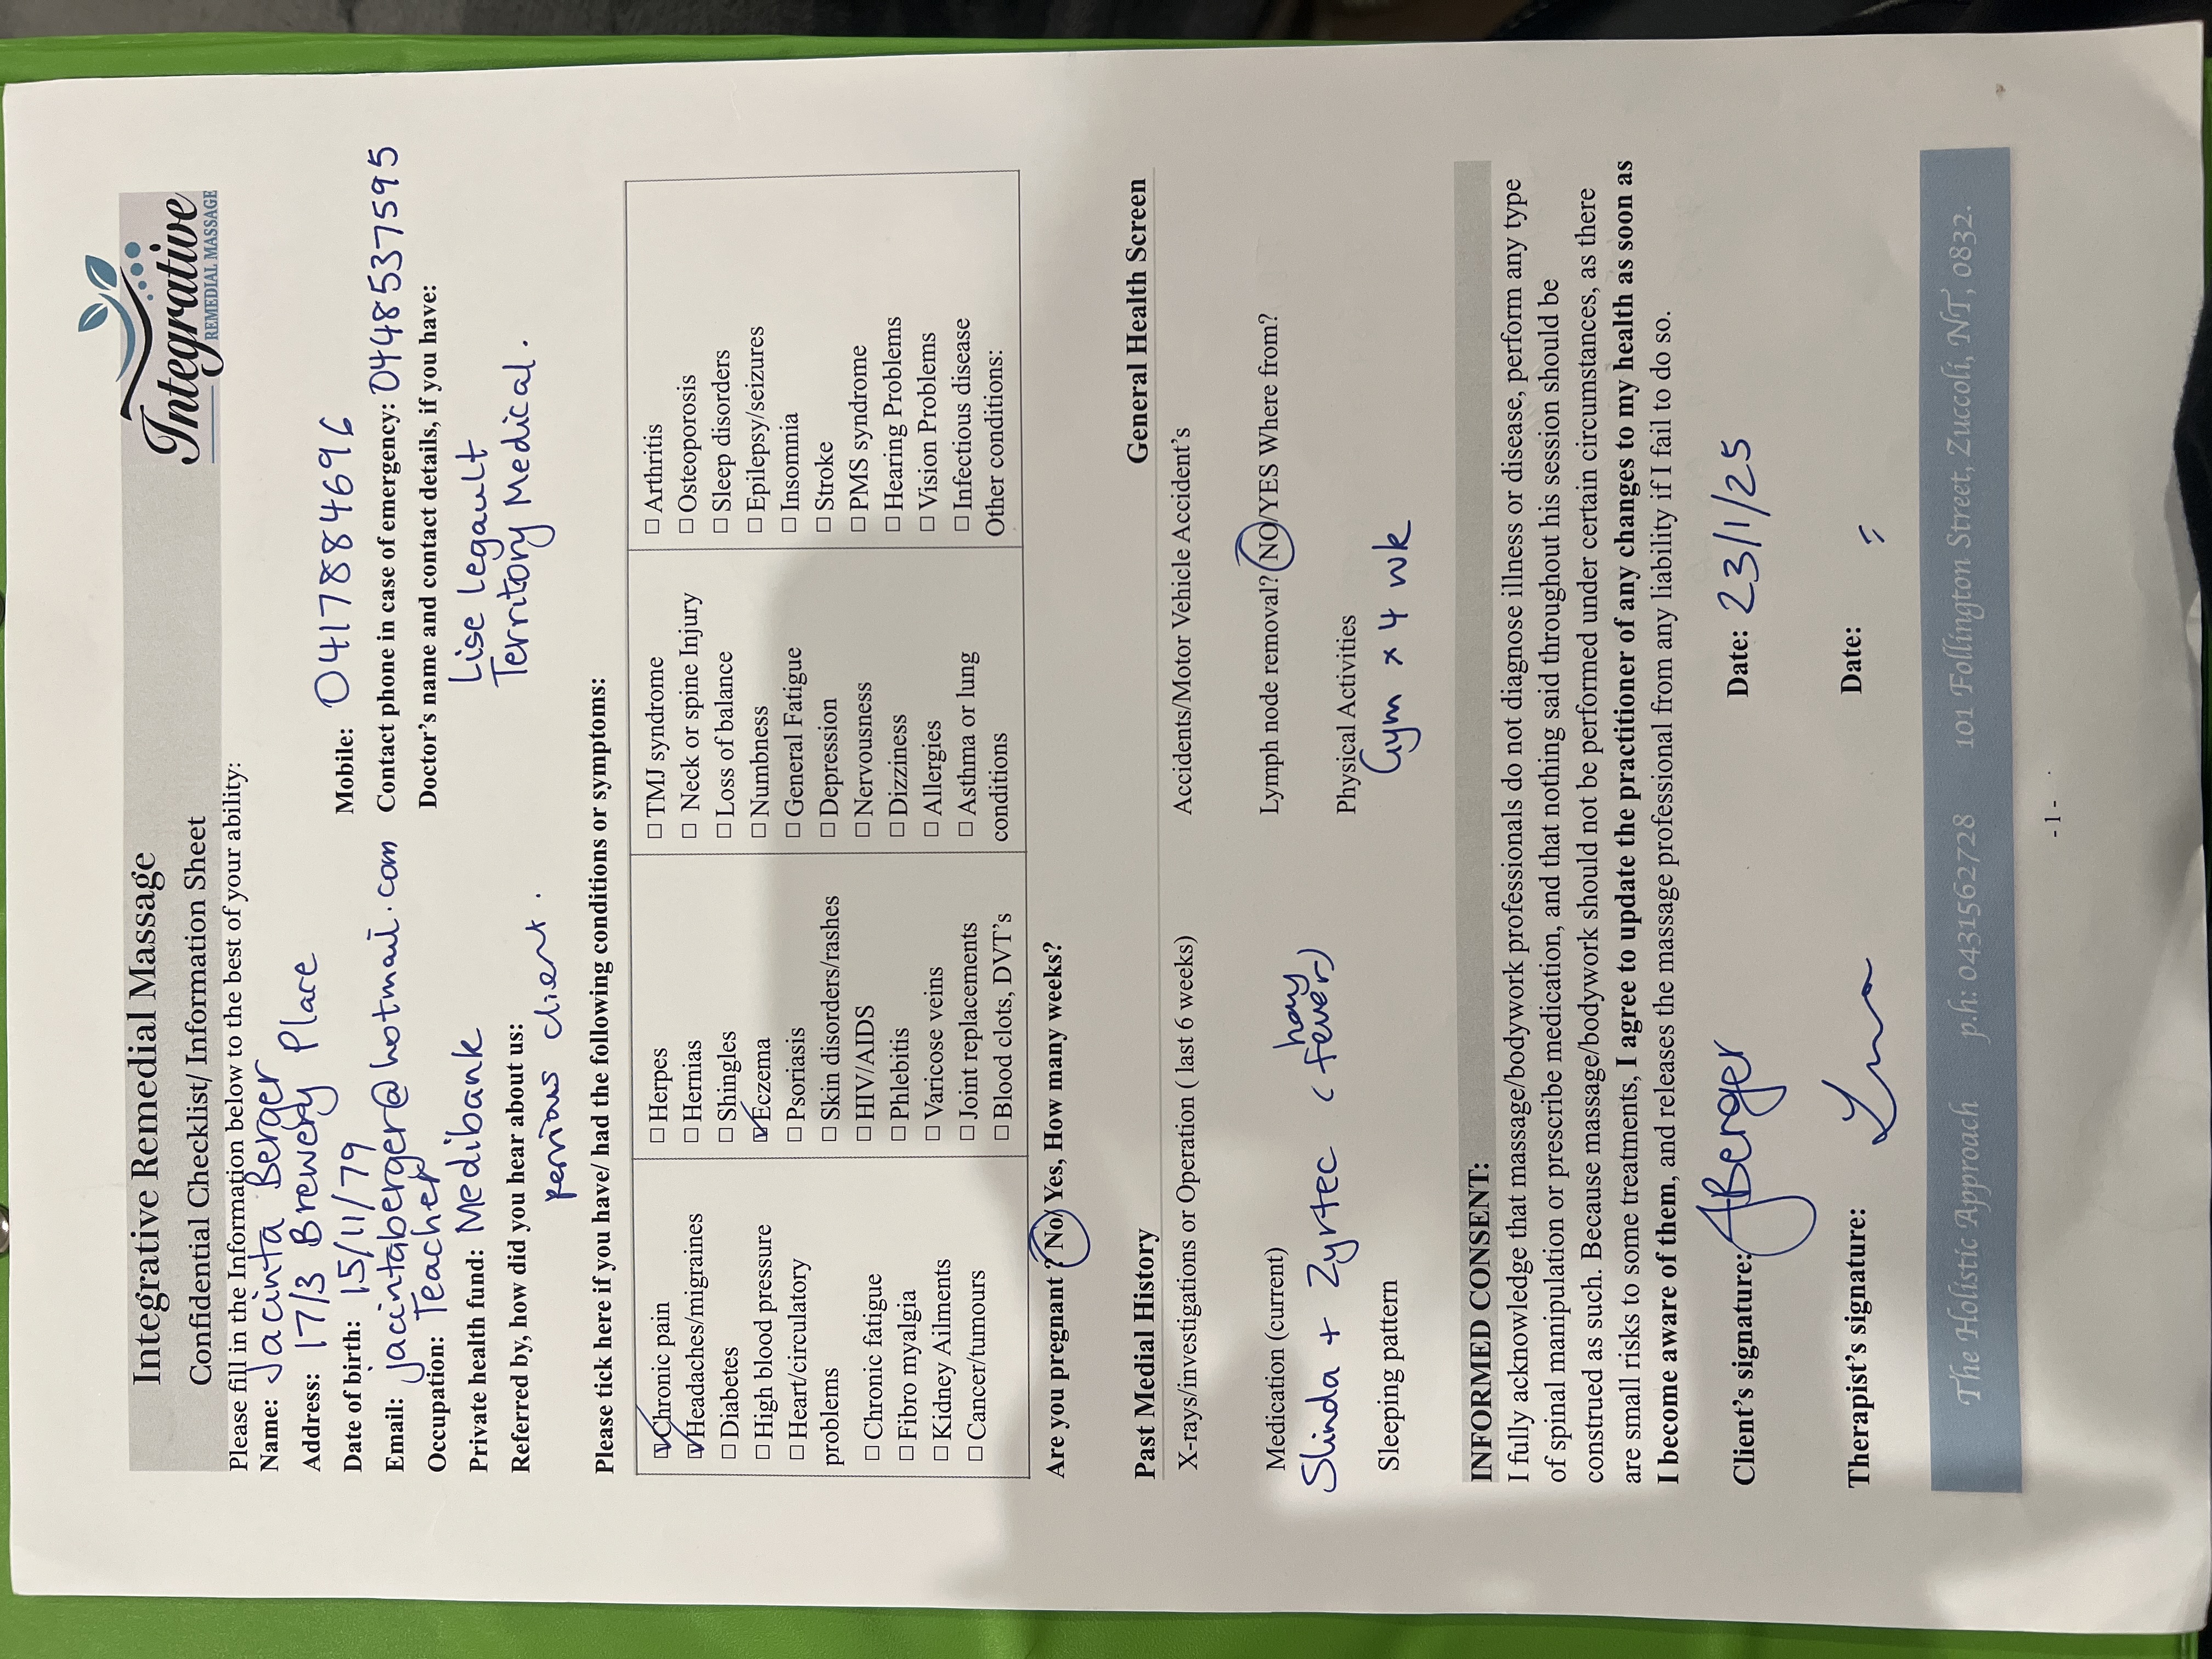 Integrative Remedial Massage
Confidential Checklist/ Information Sheet
Integrative
REMEDIAL MASSAGE
Please fill in the Information below to the best of your ability:
Name: Jacinta Berger
Address: 17/3 Brewery Place
Date of birth: 15/11/79 Mobile: 0417884696
Email: jacintaberger@hotmail.com Contact phone in case of emergency: 0448537595
Occupation: Teacher Doctor's name and contact details, if you have:
Private health fund: Medibank Lise Legault
Territory Medical.
Referred by, how did you hear about us:
pervious client.
Please tick here if you have/ had the following conditions or symptoms:
☑ Chronic pain
☑ Headaches/migraines
☐ Diabetes
☐ High blood pressure
☐ Heart/circulatory
problems
☐ Chronic fatigue
☐ Fibro myalgia
☐ Kidney Ailments
☐ Cancer/tumours
☐ Herpes
☐ Hernias
☐ Shingles
☑ Eczema
☐ Psoriasis
☐ Skin disorders/rashes
☐ HIV/AIDS
☐ Phlebitis
☐ Varicose veins
☐ Joint replacements
☐ Blood clots, DVT's
☐ TMJ syndrome
☐ Neck or spine Injury
☐ Loss of balance
☐ Numbness
☐ General Fatigue
☐ Depression
☐ Nervousness
☐ Dizziness
☐ Allergies
☐ Asthma or lung
conditions
☐ Arthritis
☐ Osteoporosis
☐ Sleep disorders
☐ Epilepsy/seizures
☐ Insomnia
☐ Stroke
☐ PMS syndrome
☐ Hearing Problems
☐ Vision Problems
☐ Infectious disease
Other conditions:
Are you pregnant ? No/ Yes, How many weeks?
Past Medial History General Health Screen
X-rays/investigations or Operation ( last 6 weeks) Accidents/Motor Vehicle Accident's
Medication (current) Lymph node removal? NO/YES Where from?
Slinda + Zyrtec (hay
fever)
Physical Activities
Gym × 4 wk
Sleeping pattern
INFORMED CONSENT:
I fully acknowledge that massage/bodywork professionals do not diagnose illness or disease, perform any type
of spinal manipulation or prescribe medication, and that nothing said throughout his session should be
construed as such. Because massage/bodywork should not be performed under certain circumstances, as there
are small risks to some treatments, I agree to update the practitioner of any changes to my health as soon as
I become aware of them, and releases the massage professional from any liability if I fail to do so.
Client's signature: JBerger Date: 23/1/25
Therapist's signature: Date: "
The Holistic Approach p.h: 0431562728 101 Follington Street, Zuccoli, NT, 0832.
- 1 -